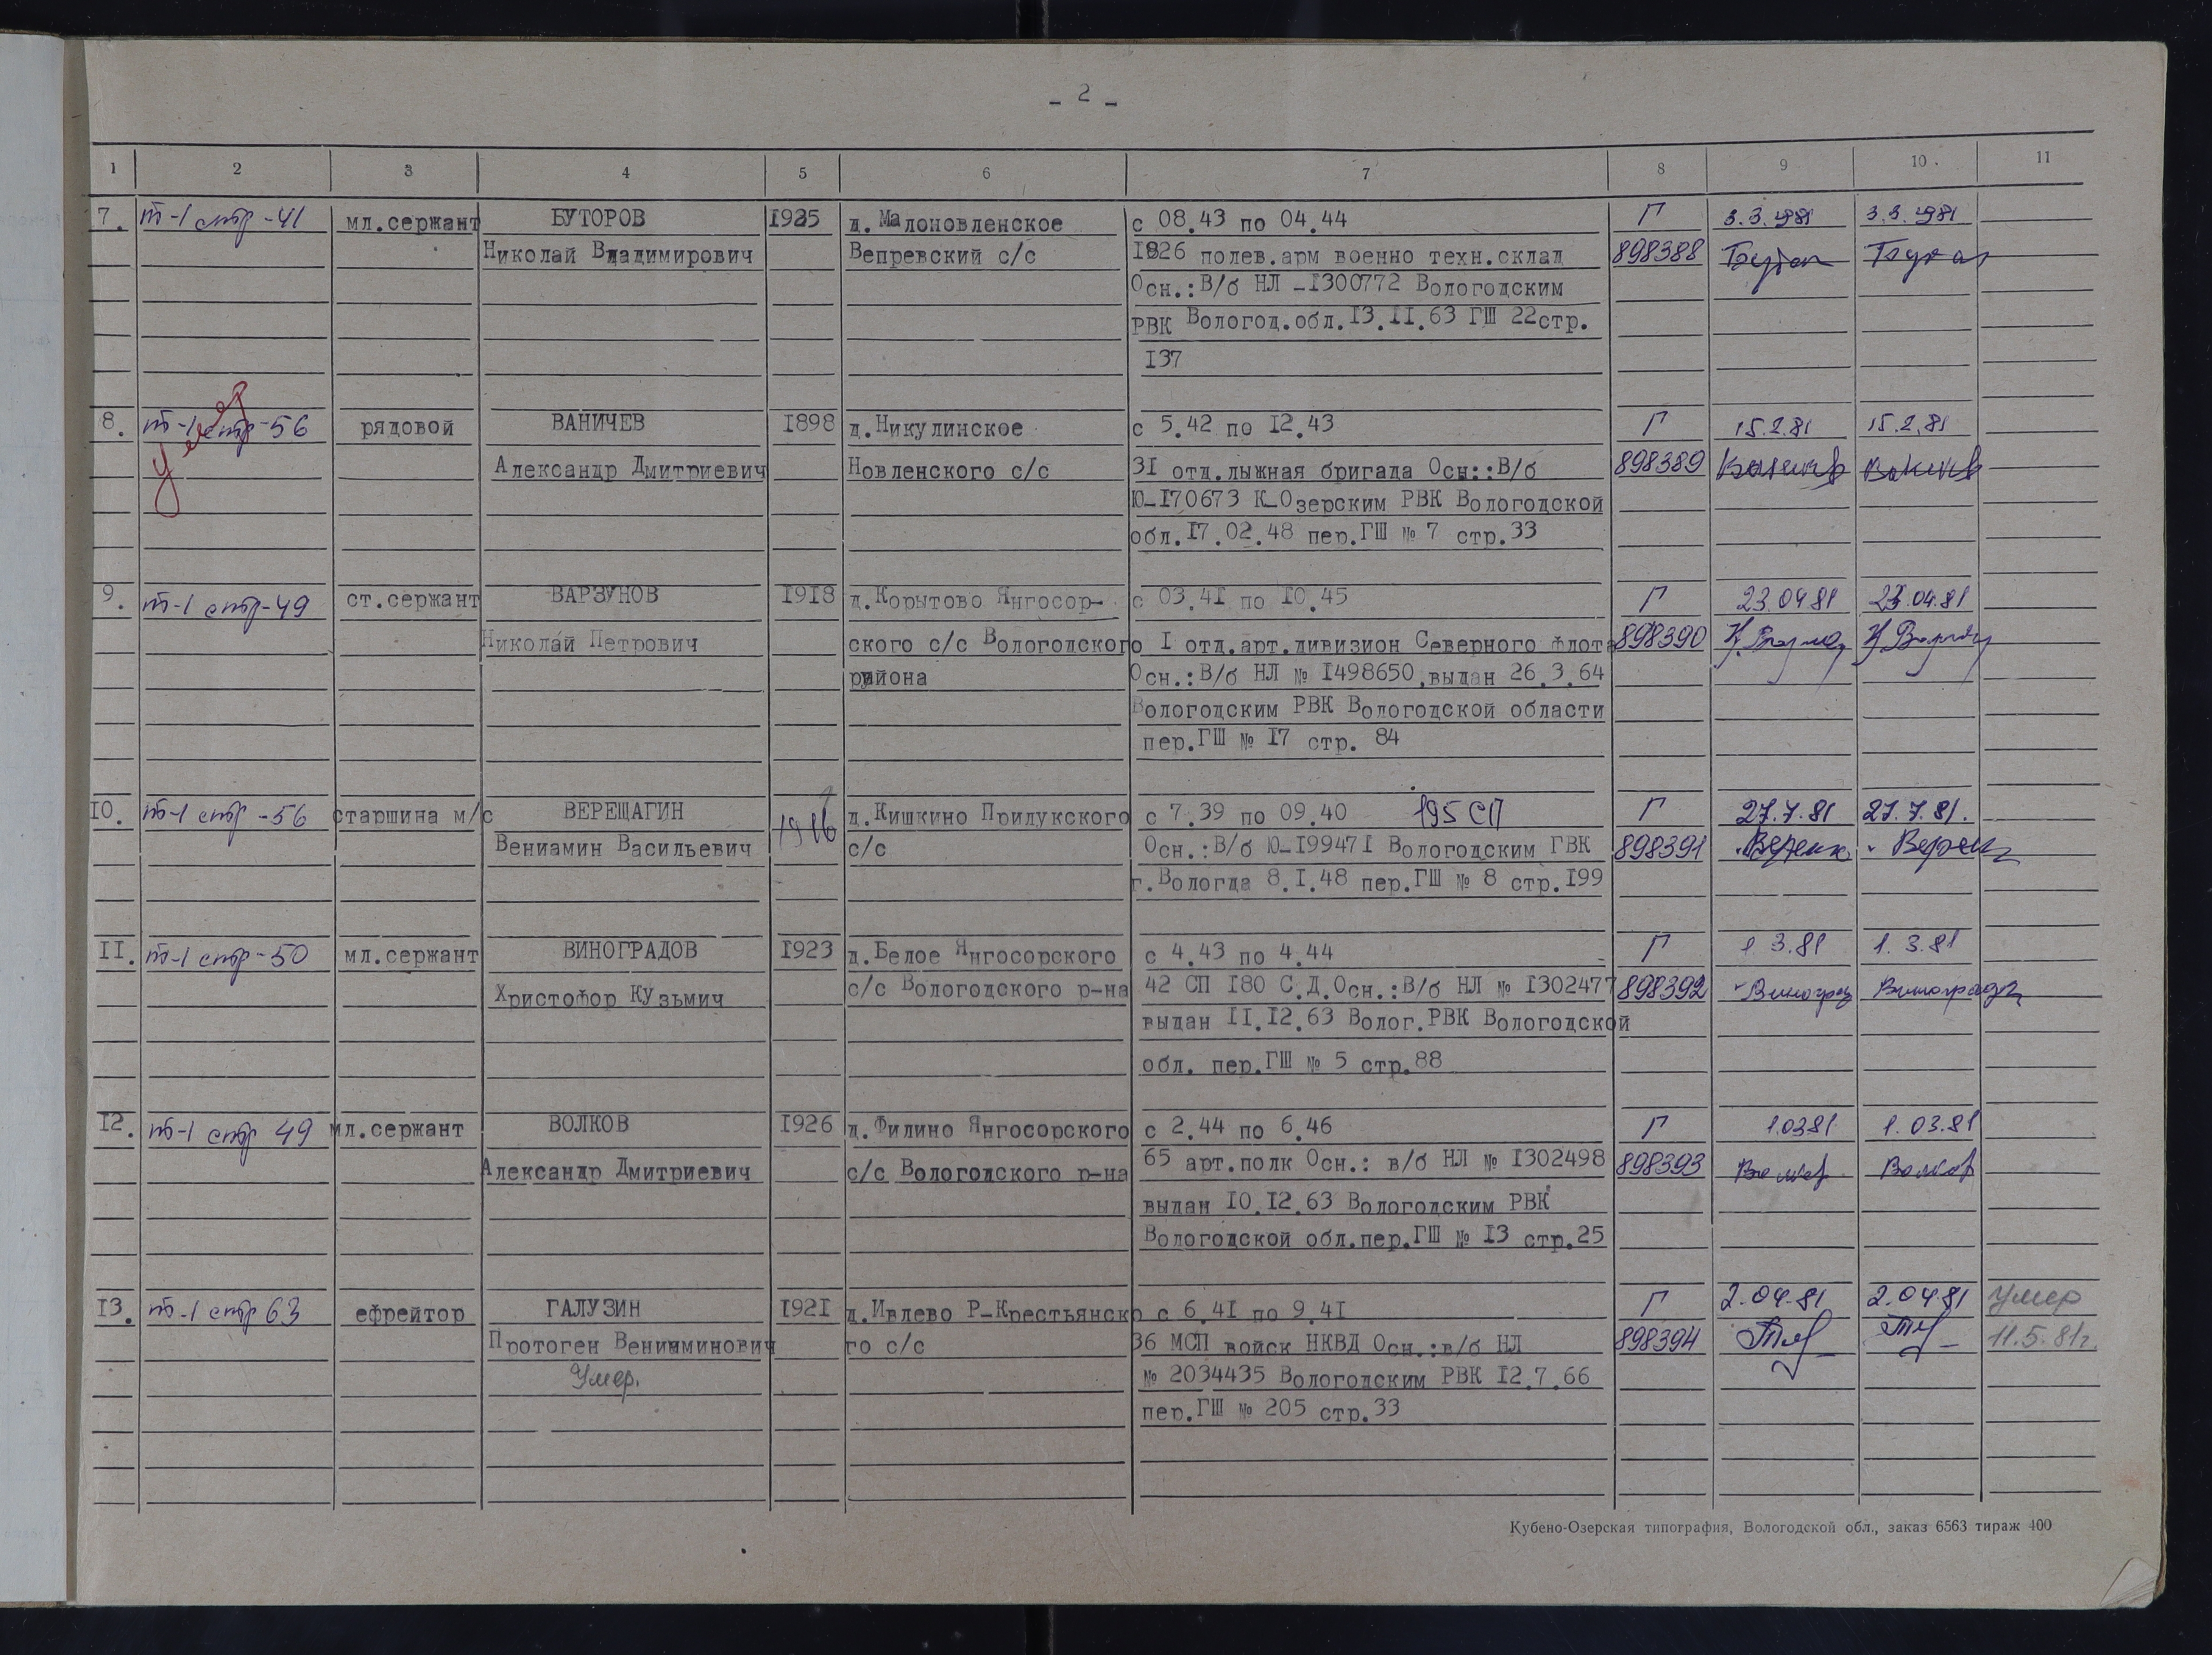 - 2 -
1 2 3 4 5 6 7 8 9 10 11
7. т-1 стр-41 мл.сержант БУТОРОВ 1925 д.Малоновленское с 08.43 по 04.44 Г 3.3.1981 3.3.1981
Николай Владимирович Вепревский с/с 1826 полев.арм военно техн.склад 898388
Осн.:В/б НЛ -1300772 Вологодским
РВК Вологод.обл.13.11.63 ГШ 22стр.
137
8. т-1 стр-56 рядовой ВАНИЧЕВ 1898 д.Никулинское с 5.42 по 12.43 Г 15.2.81 15.2.81
Умер
Александр Дмитриевич Новленского с/с 31 отд.лыжная бригада Осн::В/б 898389
Ю-170673 К-Озерским РВК Вологодской
обл.17.02.48 пер.ГШ № 7 стр.33
9. т-1 стр-49 ст.сержант ВАРЗУНОВ 1918 д.Корытово Янгосор- с 03.41 по 10.45 Г 23.0481 23.04.81
Николай Петрович ского с/с Вологодского 1 отд.арт.дивизион Северного флота 898390
района Осн.:В/б НЛ № 1498650,выдан 26.3.64
Вологодским РВК Вологодской области
пер.ГШ № 17 стр. 84
10. т-1 стр-56 старшина м/с ВЕРЕЩАГИН 1916 д.Кишкино Прилукского с 7.39 по 09.40 195 СП Г 27.7.81 27.7.81.
Вениамин Васильевич с/с Осн.:В/б Ю-199471 Вологодским ГВК 898391
г.Вологда 8.1.48 пер.ГШ № 8 стр.199
11. т-1 стр-50 мл.сержант ВИНОГРАДОВ 1923 д.Белое Янгосорского с 4.43 по 4.44 Г 1 3.81 1. 3.81
Христофор Кузьмич с/с Вологодского р-на 42 СП 180 С.Д.Осн.:В/б НЛ № 1302477 898392
выдан 11.12.63 Волог.РВК Вологодской
обл. пер.ГШ № 5 стр.88
12. т-1 стр 49 мл.сержант ВОЛКОВ 1926 д.Филино Янгосорского с 2.44 по 6.46 Г 1.0381 1.03.81
Александр Дмитриевич с/с Вологодского р-на 65 арт.полк Осн.: в/б НЛ № 1302498 898393 Волков Волков
выдан 10.12.63 Вологодским РВК
Вологодской обл.пер.ГШ № 13 стр.25
13. т-1 стр 63 ефрейтор ГАЛУЗИН 1921 д.Ивлево Р-Крестьянско с 6.41 по 9.41 Г 2.04.81 2.04.81 Умер
Протоген Вениаминович го с/с 36 МСП войск НКВД Осн.:в/б НЛ 898394 11.5.81г.
Умер. № 2034435 Вологодским РВК 12.7.66
пер.ГШ № 205 стр.33
Кубено-Озерская типография, Вологодской обл., заказ 6563 тираж 400